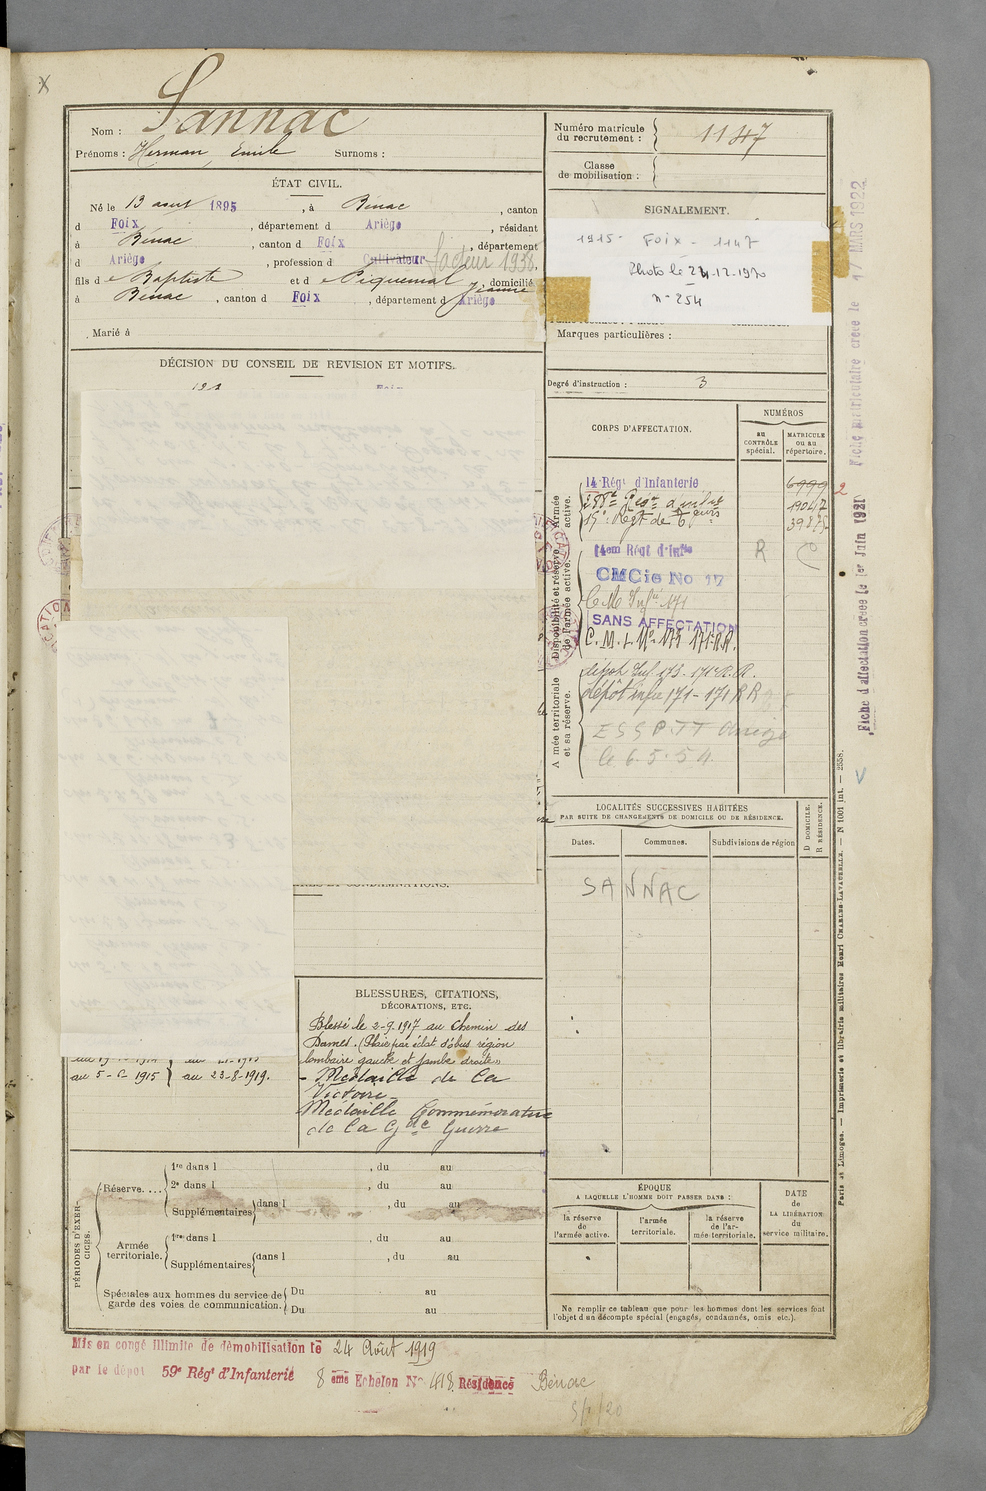 Nom : Sannac
Prénoms : Herman, Emile Surnoms :
ÉTAT CIVIL.
Né le 13 aout 1895, à Bénac, canton
d Foix, département d Ariège, résidant
à Bénac, canton d Foix, département
d Ariège, profession d Cultivateur facteur 1938.
fils de Baptiste et de Piquemal Jeanne domicilié
à Bénac, canton d Foix, département d Ariège
Marié à
DÉCISION DU CONSEIL DE REVISION ET MOTIFS.
au 5-6-1915 au 23-8-1919.
BLESSURES, CITATIONS,
DÉCORATIONS, ETC.
Blessé le 2-9-1917 au Chemin des
Dames. (Plaie par éclat d'obus région
lombaire gauche et jambe droite»
- Médaille de la
Victoire -
Médaille Commémorative
de la Gde Guerre
PÉRIODES D'EXERCICES.
Réserve....
1re dans l , du au
2e dans l , du au
Supplémentaires dans l , du au
Armée territoriale.
1re dans l , du au
Supplémentaires dans l , du au
Spéciales aux hommes du service de garde des voies de communication.
Du au
Du au
Numéro matricule du recrutement : 1147
Classe de mobilisation :
SIGNALEMENT.
1915 - Foix - 1147
Photo le 24.12.1970
n° 254
Marques particulières :
Degré d'instruction : 3
CORPS D'AFFECTATION.
NUMÉROS
au CONTRÔLE spécial.
MATRICULE ou au répertoire.
Armée active.
14 Régt d'Infanterie 6999
19047
15e Regt de Teurs 39875
2
Disponibilité et réserve de l'armée active.
14em Régt d'Infie R
CMCie No 17
C.M Infie 171
SANS AFFECTATION
C.M.I. No 173 171 R.R.
Armée territoriale et sa réserve.
dépôt Inf 173 - 171 R.R.
dépôt infie 171 - 171 RR
ESSPTT Ariège
le 6.5.54.
LOCALITÉS SUCCESSIVES HABITÉES
PAR SUITE DE CHANGEMENTS DE DOMICILE OU DE RÉSIDENCE.
D DOMICILE.
R RÉSIDENCE.
Dates. Communes. Subdivisions de région
SANNAC
ÉPOQUE
A LAQUELLE L'HOMME DOIT PASSER DANS :
la réserve de l'armée active.
l'armée territoriale.
la réserve de l'armée territoriale.
DATE de LA LIBÉRATION du service militaire.
Ne remplir ce tableau que pour les hommes dont les services font
l'objet d'un décompte spécial (engagés, condamnés, omis etc.).
Fiche matriculaire créée le 17 MARS 1922
Fiche d'affectation créée le 1er Juin 1921
Paris et Limoges. — Imprimerie et librairie militaires Henri CHARLES-LAVAUZELLE. — N° 1001 int. — 2558.
Mis en congé illimité de démobilisation le 24 Août 1919
par le dépôt 59e Régt d'Infanterie 8 eme Echelon No 418 Résidence Bénac